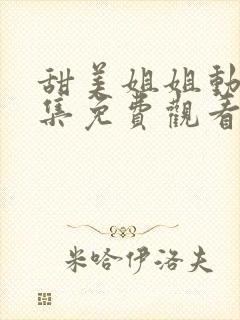 甜美姐姐動
集免費觀看
米哈伊洛夫